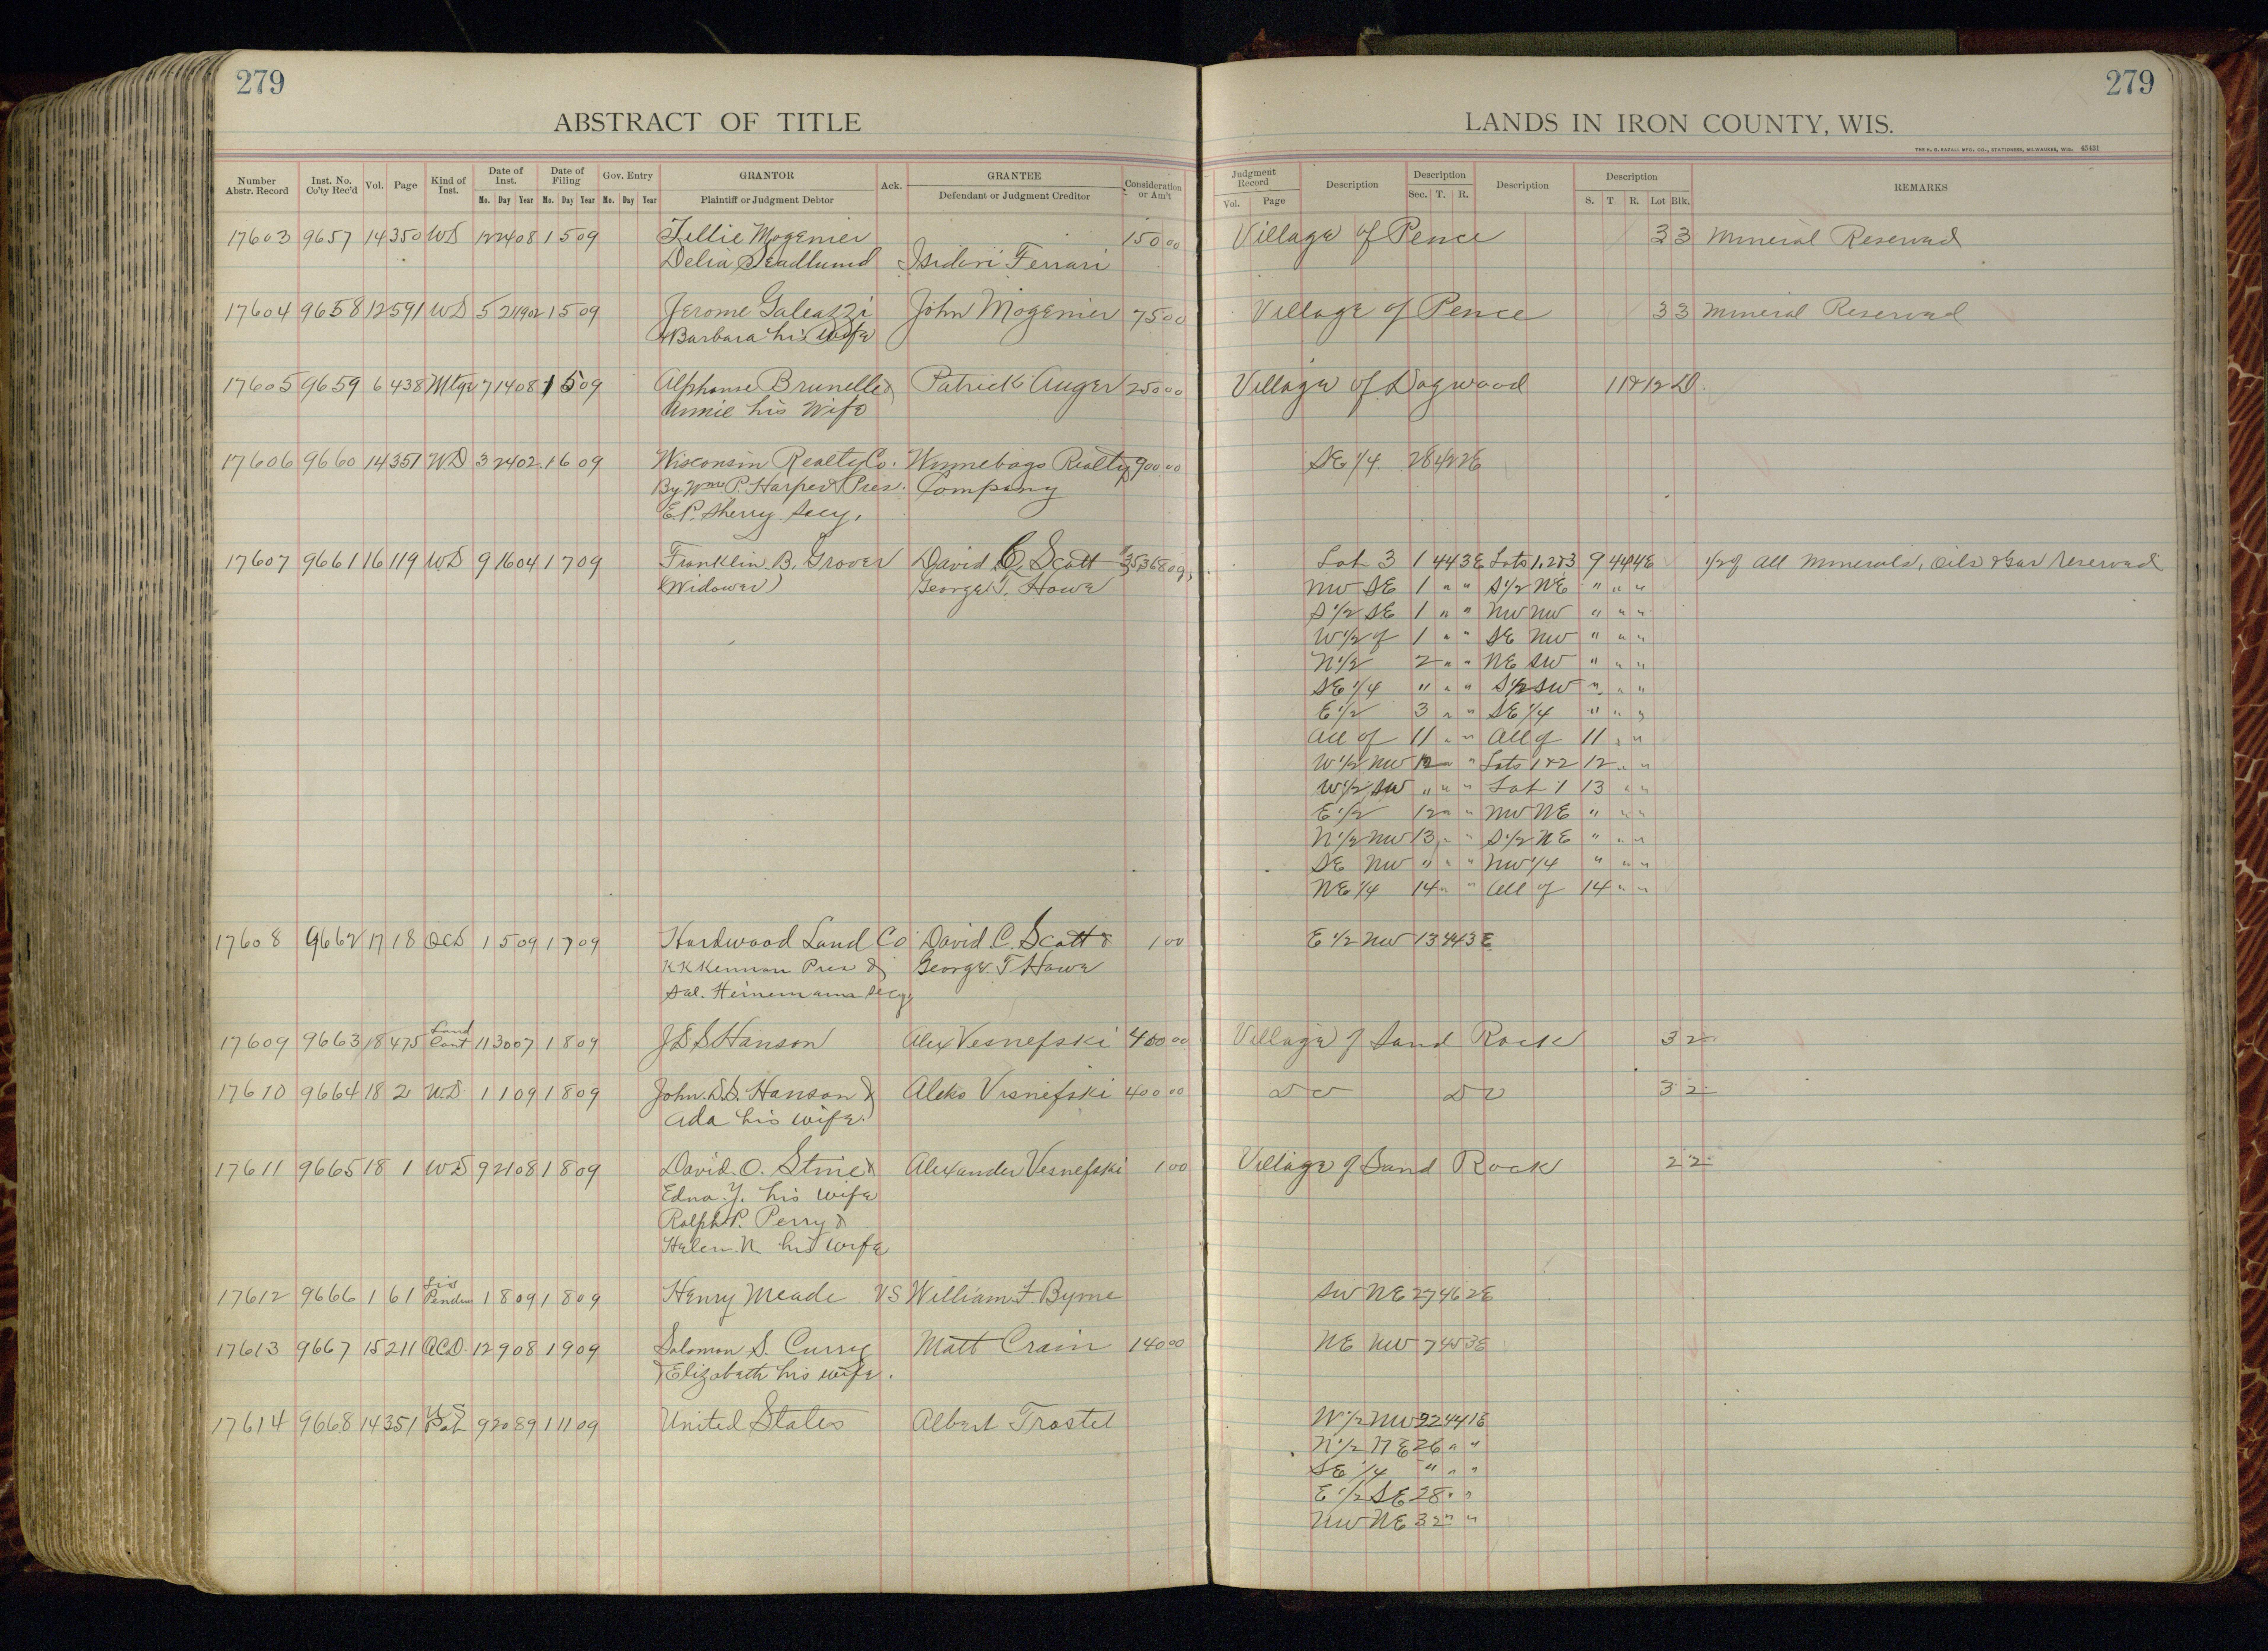 279
279
ABSTRACT OF TITLE
LANDS IN IRON COUNTY, WIS.
THE H. G. RAZALL MFG. CO., STATIONERS, MILWAUKEE, WIS. 45431
Number Abstr. Record Inst. No. Co'ty Rec'd Vol. Page Kind of Inst. Date of Inst. Mo. Day Year Date of Filing Mo. Day Year Gov. Entry Mo. Day Year GRANTOR Plaintiff or Judgment Debtor Ack. GRANTEE Defendant or Judgment Creditor Consideration or Am't
Judgment Record Vol. Page Description Description Sec. T. R. Description Description S. T. R. Lot Blk. REMARKS
17603 9657 14 350 WD 12 24 08 1 5 09 Tillie Mogenier 150 00 Village of Pence 3 3 Mineral Reserved
Delia Seadlund Isidori Ferrari
17604 9658 12 591 WD 5 2 1902 1 5 09 Jerome Galeazzi John Mogenier 75 00 Village of Pence 3 3 Mineral Reserved
& Barbara his Wife
17605 9659 6 438 Mtge 7 14 08 1 5 09 Alphonse Brunelle & Patrick Auger 250 00 Village of Dogwood 11 & 12 D
Annie his Wife
17606 9660 14 351 WD 3 24 02 1 6 09 Wisconsin Realty Co. Winnebago Realty 900 00 SE 1/4 28 42 2E
By Wm P. Harper Pres. Company
E.P. Sherry Secy.
17607 9661 16 119 WD 9 16 04 1 7 09 Franklin B. Grover David C Scott & 35368 09 Lot 3 1 44 3E Lots 1, 2 & 3 9 44 4E 1/2 of All Minerals, Oils & Gas reserved
(Widower) George T. Howe NW SE 1 " " S 1/2 NE " " "
S 1/2 SE 1 " " NW NW " " "
W 1/2 of 1 " " SE NW " " "
N 1/2 2 " " NE SW " " "
SE 1/4 " " " S 1/2 SW " " "
E 1/2 3 " " SE 1/4 " " "
All of 11 " " All of 11 " "
W 1/2 NW 12 " " Lots 1 & 2 12 " "
W 1/2 SW " " " Lot 1 13 " "
E 1/2 12 " " NW NE " " "
N 1/2 NW 13 " " S 1/2 NE " " "
SE NW " " " NW 1/4 " " "
NE 1/4 14 " " All of 14 " "
17608 9662 17 18 QCD 1 5 09 1 7 09 Hardwood Land Co David C. Scott & 1 00 E 1/2 NW 13 44 3E
KK Kennan Pres & George T Howe
Sal. Heinemann Secy
17609 9663 18 475 Land Cont 11 30 07 1 8 09 J S S Hanson Alex Vesnefski 400 00 Village of Sand Rock 3 2
17610 9664 18 2 WD 1 1 09 1 8 09 John S.S. Hanson & Aleko Visnefski 400 00 Do Do 3 2
Ada his wife.
17611 9665 18 1 WD 9 21 08 1 8 09 David O. Stine & Alexander Vesnefski 1 00 Village of Sand Rock 2 2
Edna Y. his wife
Ralph P. Perry &
Helen N. his wife
17612 9666 1 61 Lis Penden 1 8 09 1 8 09 Henry Meade VS William F Byrne SW NE 27 46 2E
17613 9667 15 211 QCD 12 9 08 1 9 09 Solomon S. Curry Matt Crain 140 00 NE NW 7 45 3E
& Elizabeth his wife.
17614 9668 14 351 US Pat 9 20 89 1 11 09 United States Albert Trostel W 1/2 NW 22 44 1E
N 1/2 NE 26 " "
SE 1/4 " " "
E 1/2 SE 28 " "
NW NE 32 " "